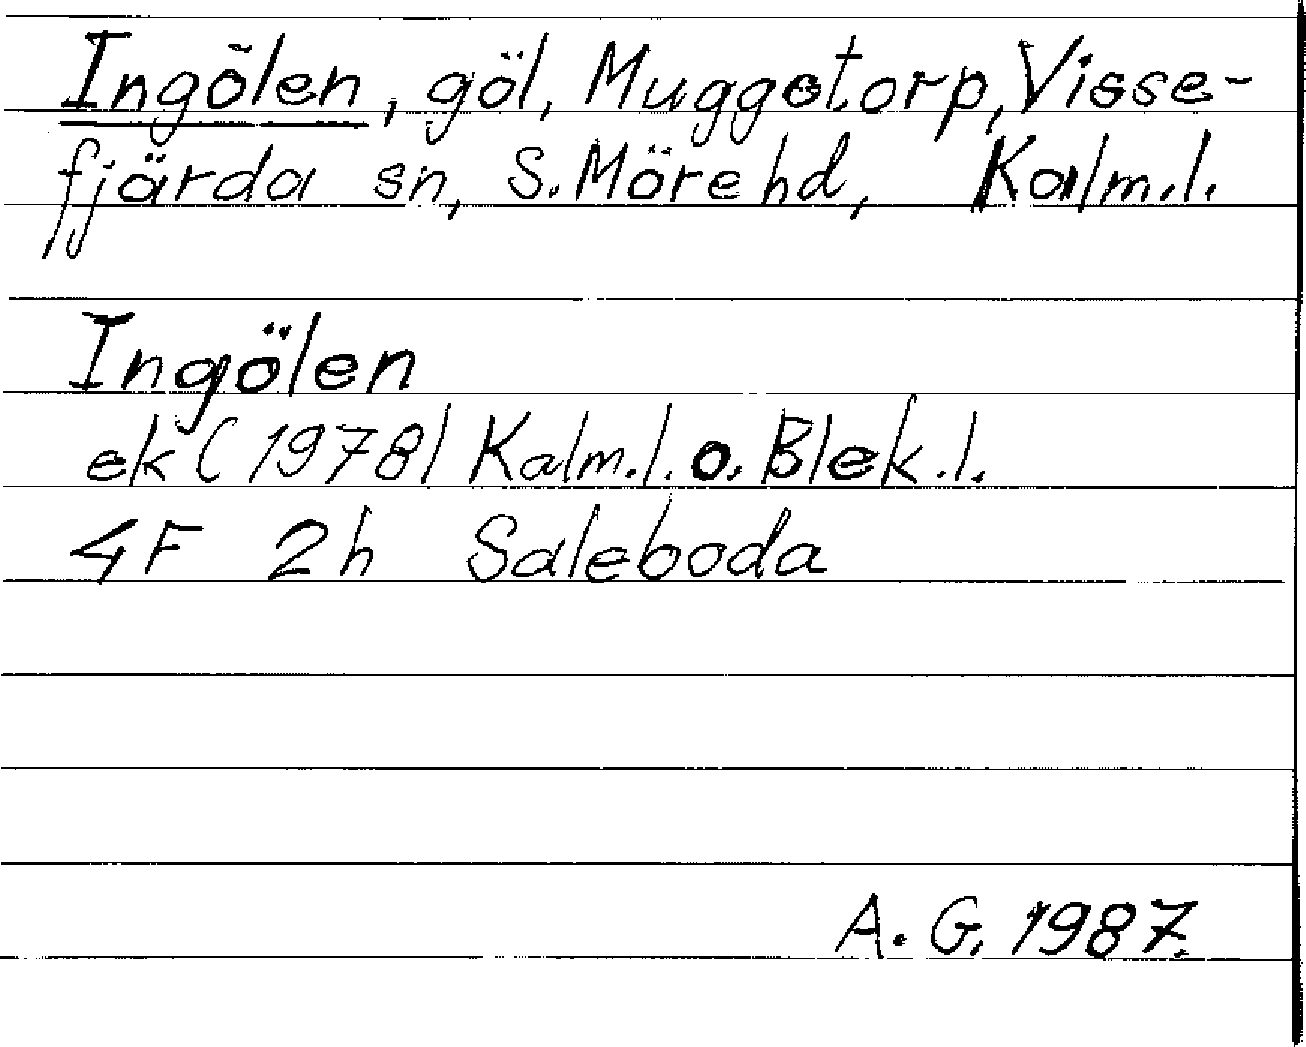 Ingölen, göl, Muggetorp, Visse-
fjärda sn, S. Möre hd, Kalm.l.
Ingölen
ek (1978) Kalm.l. o. Blek.l.
4F 2h Saleboda
A. G. 1987.